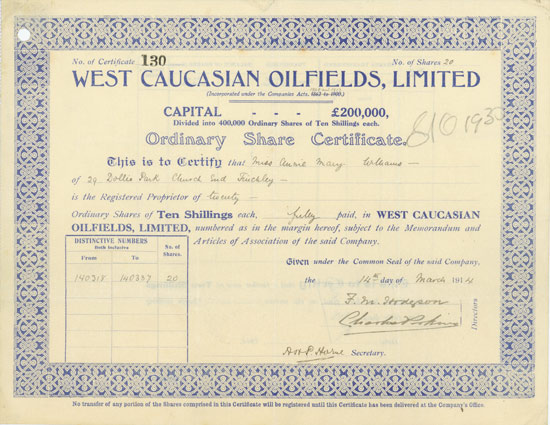 No. of Certificate 130 No. of Shares 20
WEST CAUCASIAN OILFIELDS, LIMITED
(Incorporated under the Companies Acts, 1862 to 1900.)
CAPITAL - - - £200,000,
Divided into 400,000 Ordinary Shares of Ten Shillings each.
Ordinary Share Certificate.
This is to Certify that Miss Annie Mary Williams
of 29 Dollis Park Church End Finchley
is the Registered Proprietor of twenty
Ordinary Shares of Ten Shillings each, fully paid, in WEST CAUCASIAN
OILFIELDS, LIMITED, numbered as in the margin hereof, subject to the Memorandum and
Articles of Association of the said Company.
DISTINCTIVE NUMBERS
Both Inclusive
No. of Shares.
From To
140318 140337 20
Given under the Common Seal of the said Company,
the 14th day of March 1914
Directors
Secretary.
No transfer of any portion of the Shares comprised in this Certificate will be registered until this Certificate has been delivered at the Company's Office.